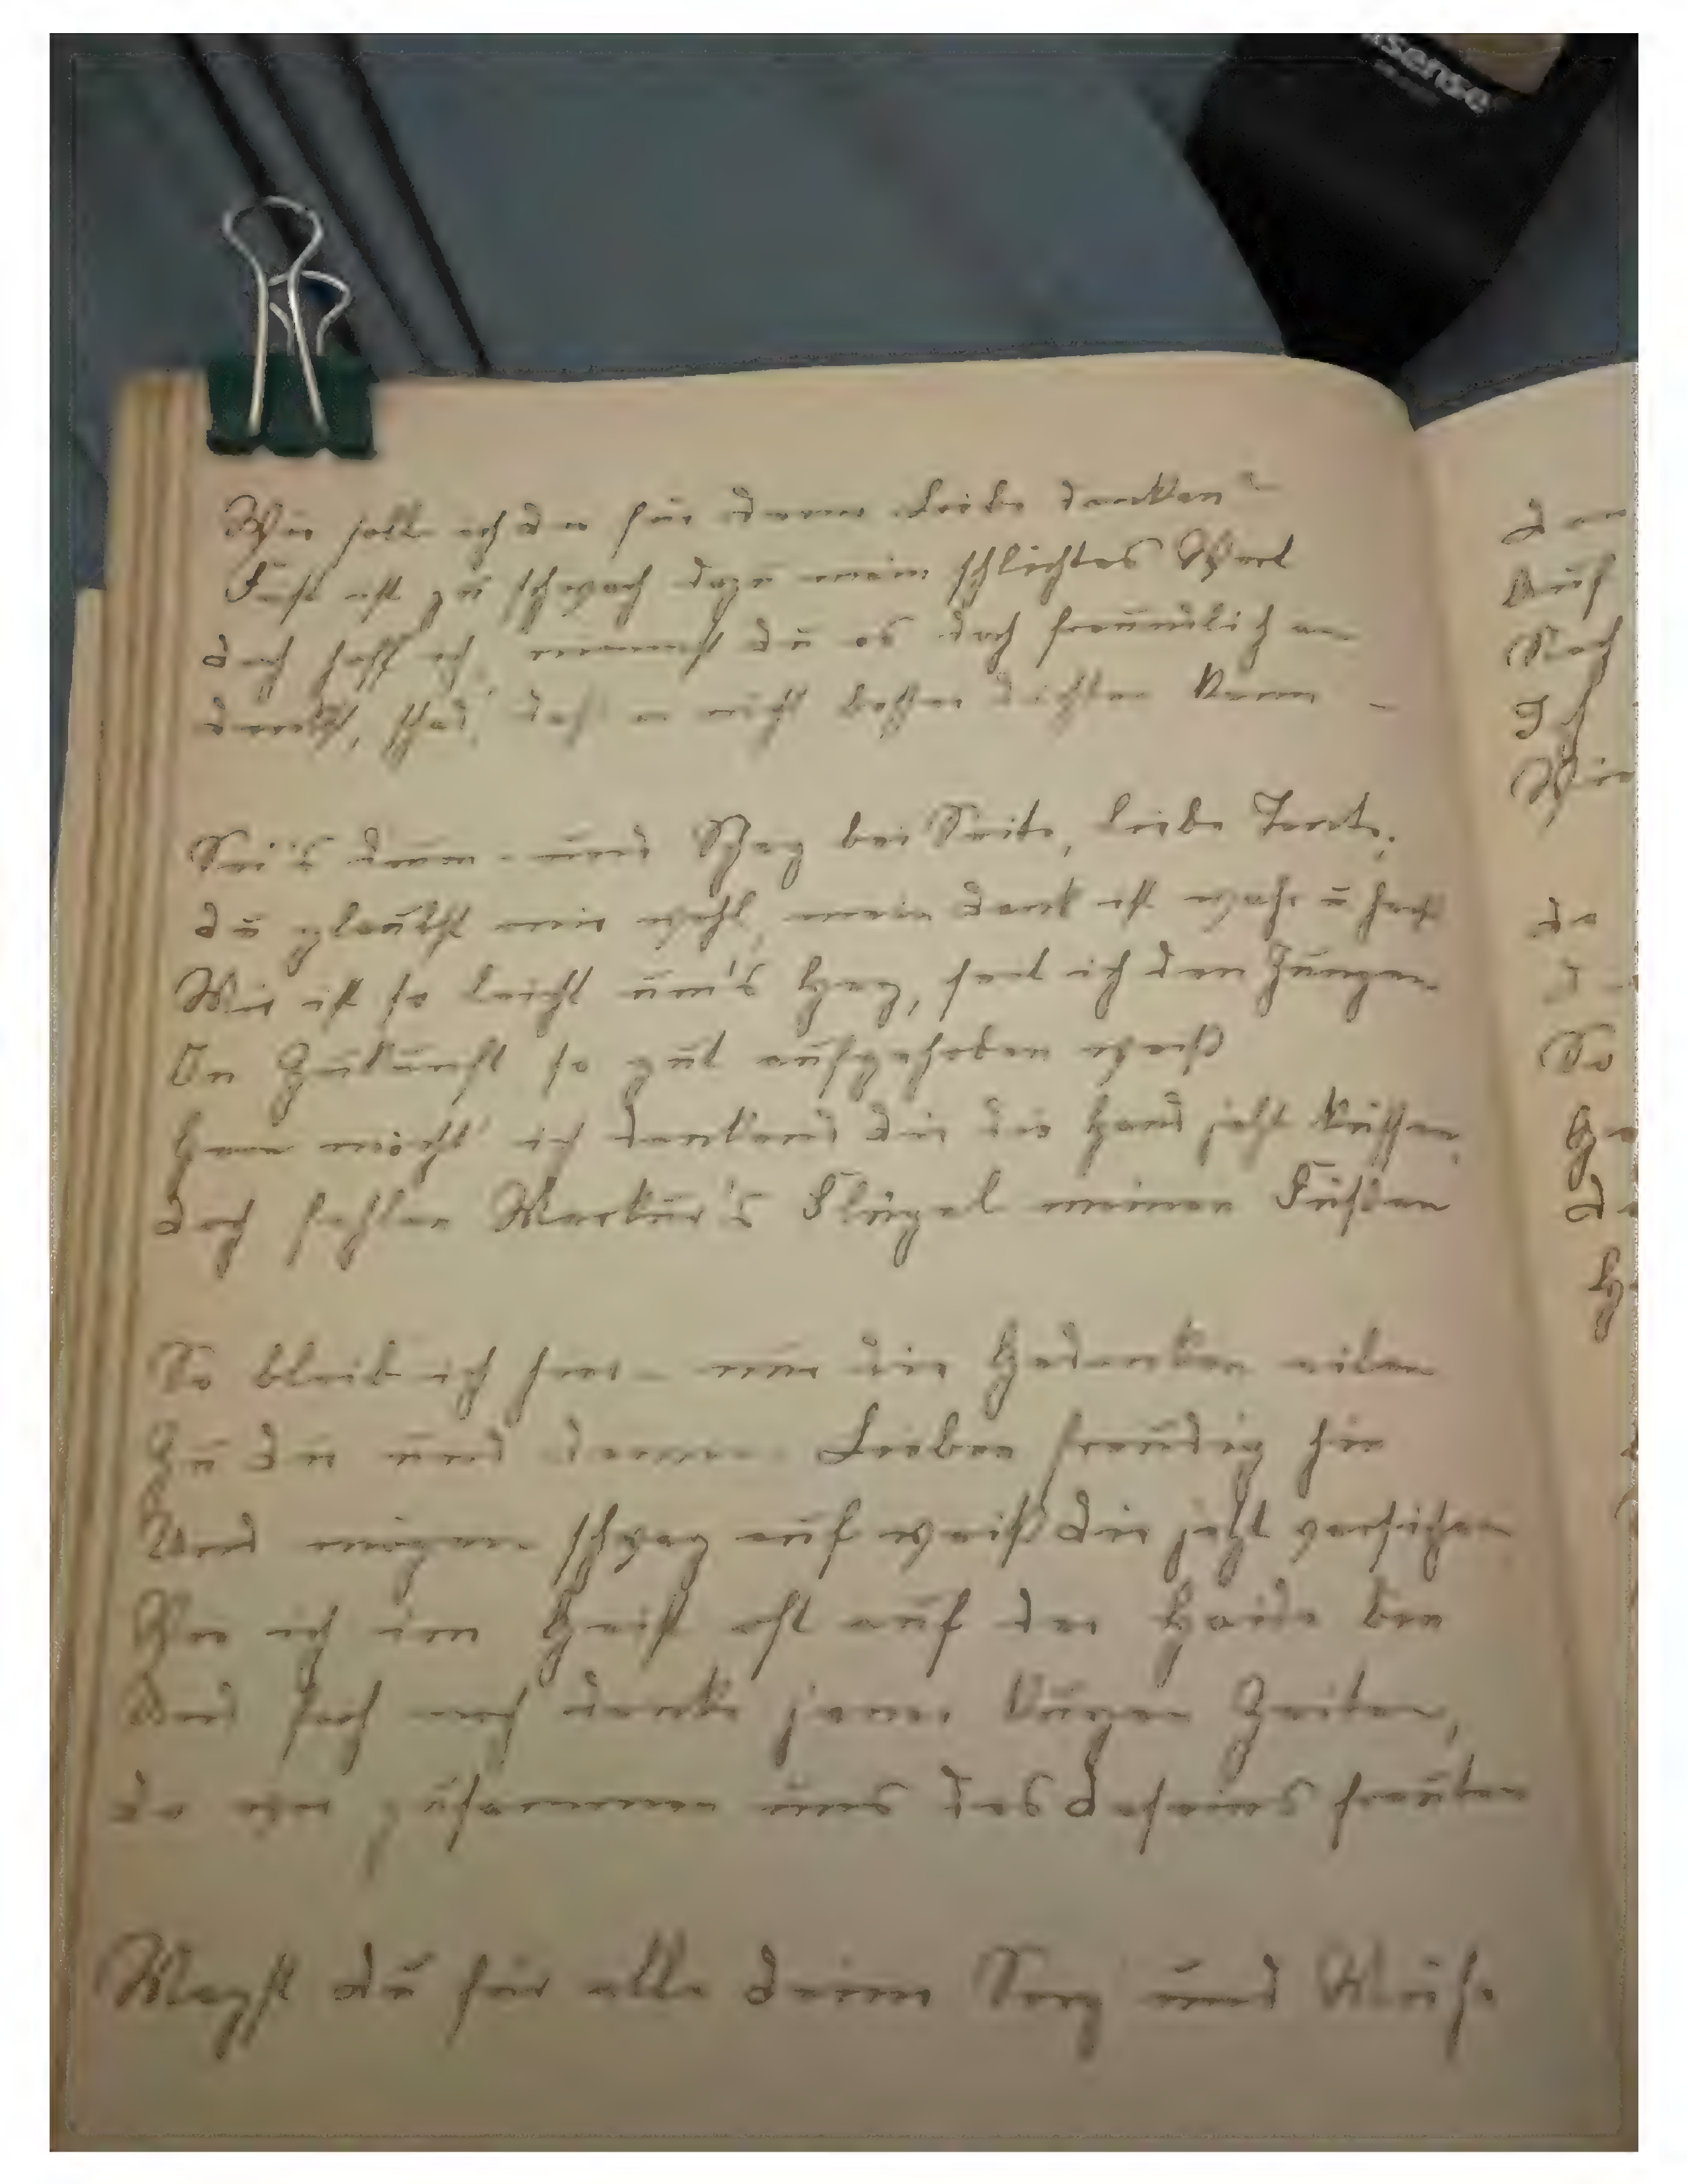 Wie soll ich dir für deine Liebe danken?
Fast ist zu schwach dazu mein schlichtes Wort
doch hoff ich, nimmst du es doch freundlich an
denkst, schad' daß er nicht besser dichten kann –
Sei's drum – und Scherz bei Seite, liebe Tante,
du glaubst mir wohl, mein Dank ist wahr u heiß
Mir ist so leicht um's Herz, seit ich den Jungen
In Zukunft so gut aufgehoben weiß
Gern möcht' ich dankend dir die Hand jetzt küssen,
doch fehlen Merkur's Flügel meinen Füßen
So bleib ich hier – nur die Gedanken eilen
Zu dir und deinen Lieben freudig hin
Und mögen schwarz auf weiß dir jetzt versichern
Wie ich im Geist oft auf der Haide bin
Und froh noch denke jener kurzen Zeiten,
da wir zusammen uns des Daseins freuten
Magst du für alle deine Sorg und Müh
den
Auf
Nach
Wie
So